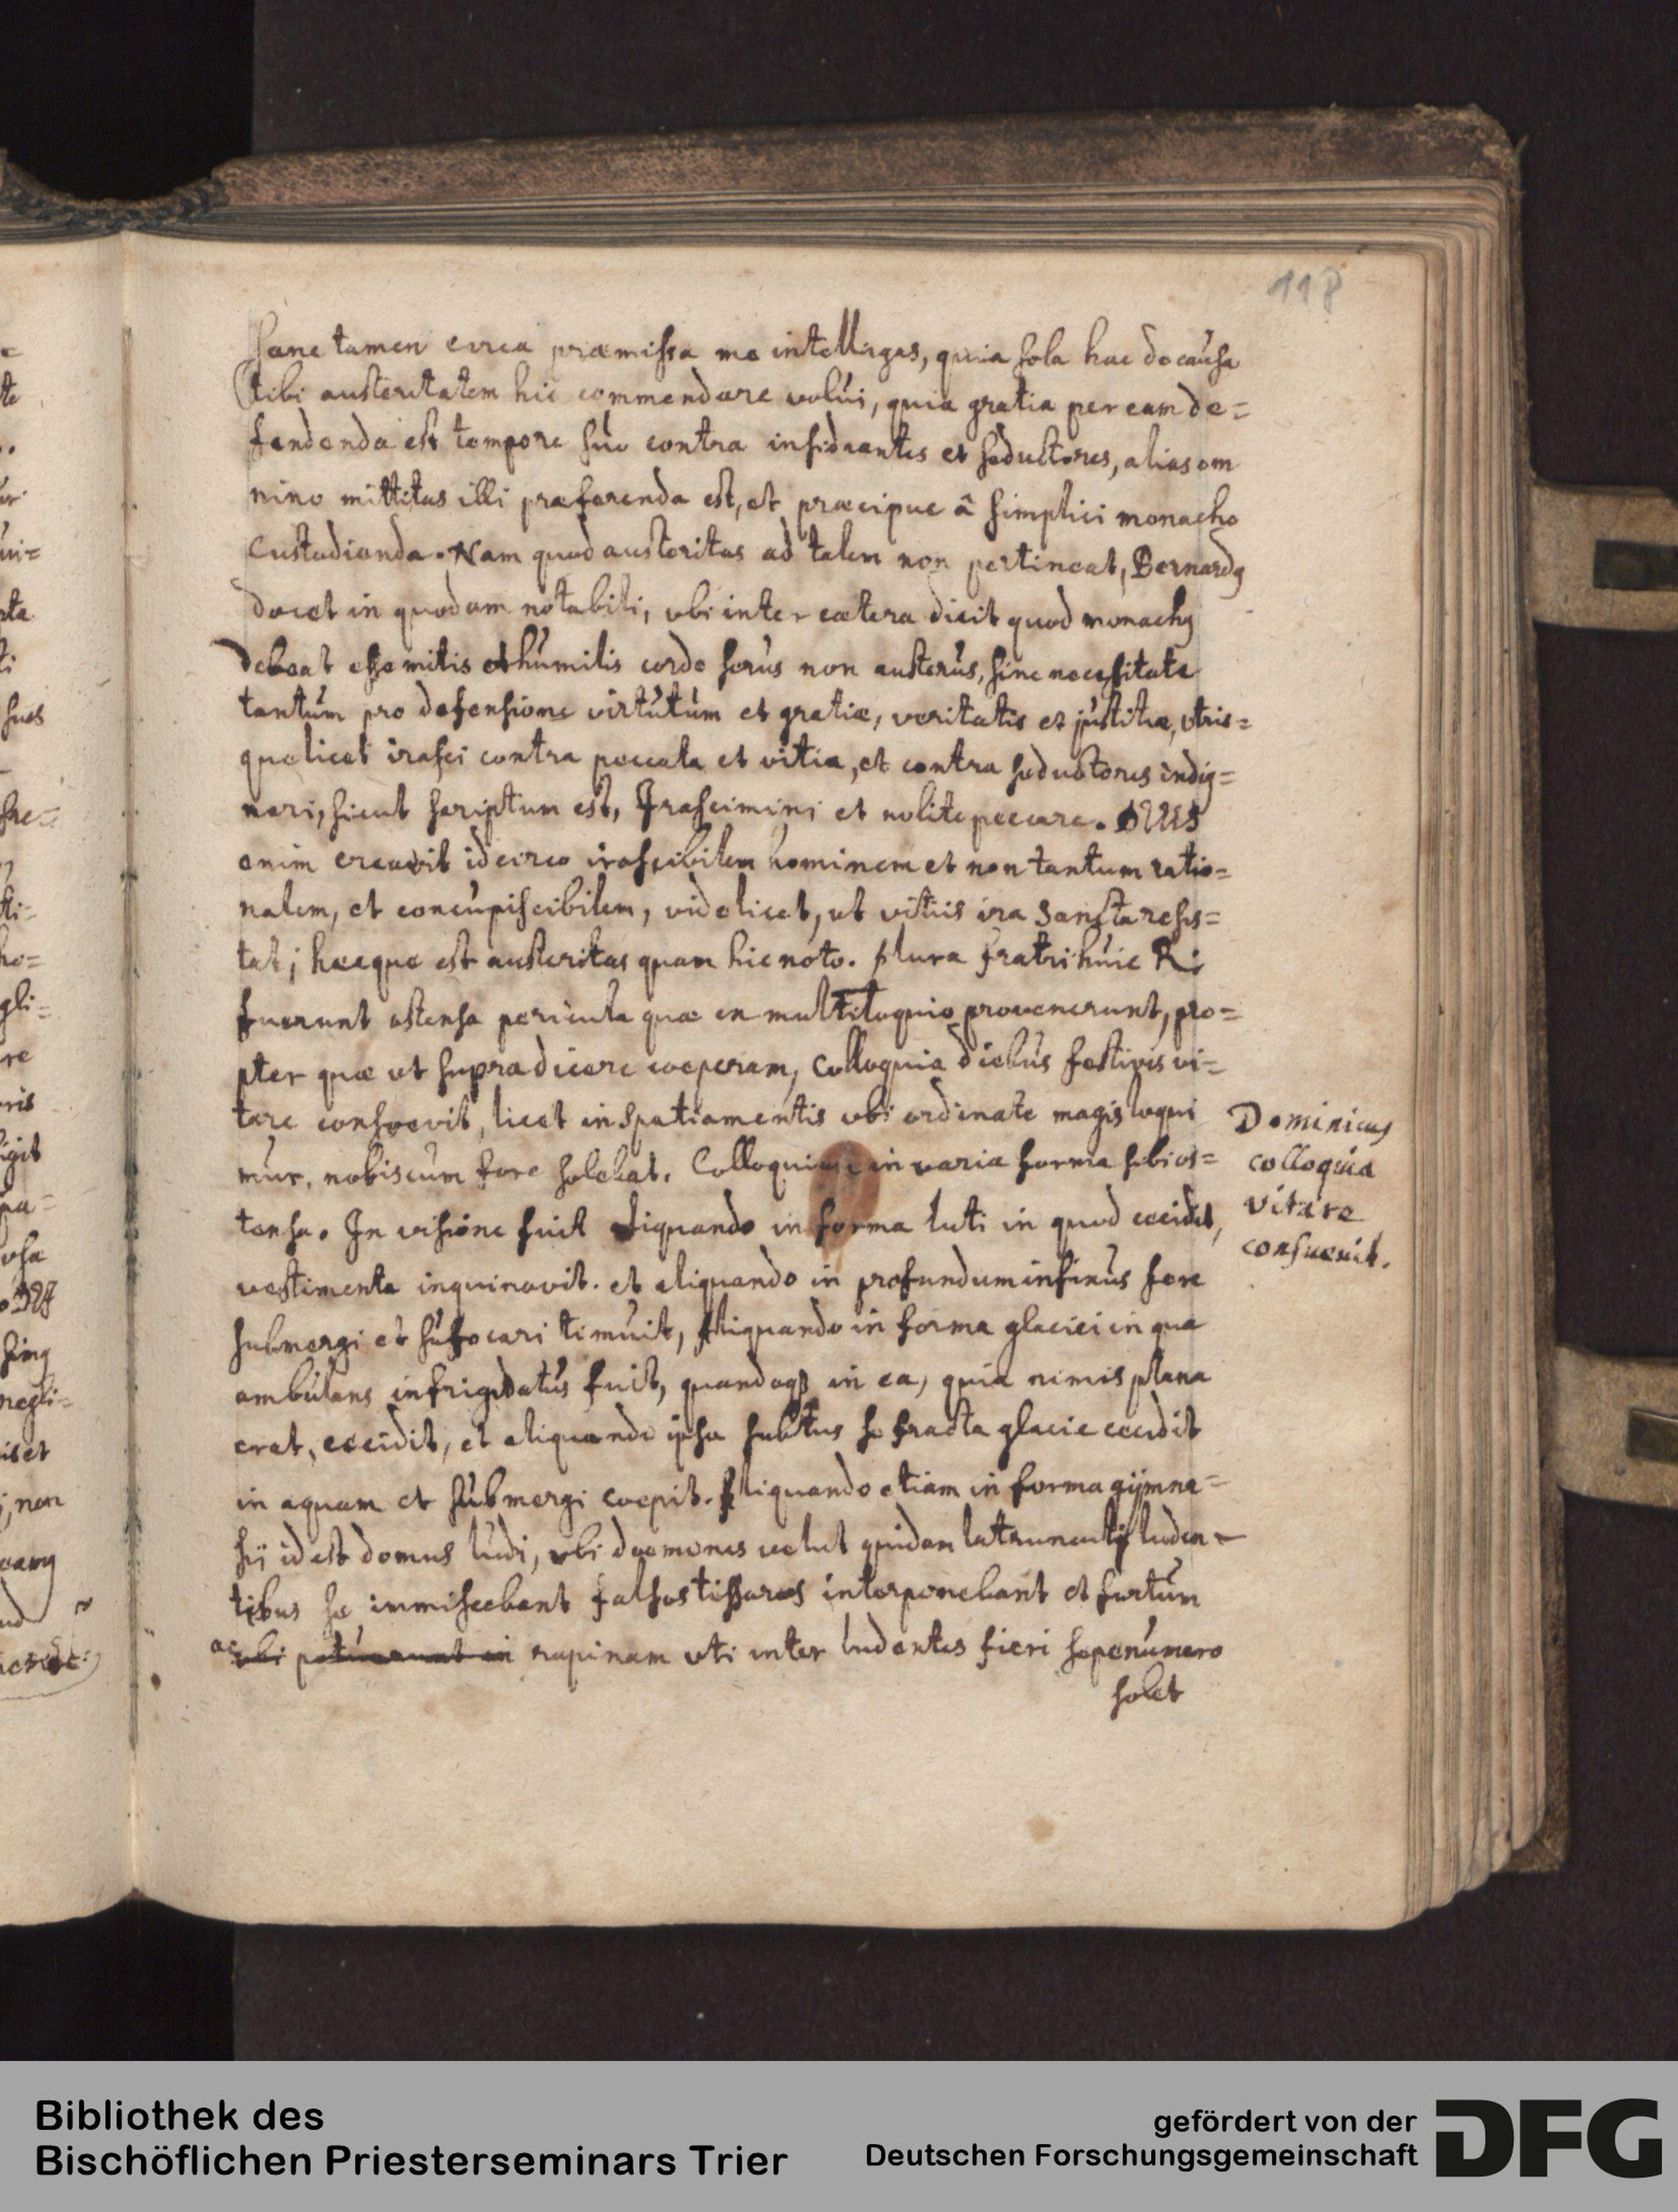 118
Sane tamen circa præmissa me intelligas, quia sola hac de causa
tibi austeritatem hic commendare volui, quia gratia per eam de=
fendenda est tempore suo contra insidiantes et seductores, alias om
nino mititas illi præferenda est, et præcipue â simplici monacho
custodienda. Nam quod austeritas ad talem non pertineat, Bernardꝯ
docet in quodam notabili, ubi inter cætera dicit quod monachꝯ
debeat esse mitis et humilis corde serus non austerus, sine necessitate
tantum pro defensione virtutum et gratiæ, veritatis et justitiæ, utris=
que licet irasci contra peccata et vitia, et contra seductores indig=
nari, sicut scriptum est, Irascimini et nolite peccare. DEUS
enim creavit idcirco irascibilem hominem et non tantum ratio=
nalem, et concupiscibilem, videlicet, ut vitiis ira sancta resis=
tat; hæcque est austeritas quam hic noto. plura fratri huic R:
fuerunt ostensa pericula quæ in multiloquio provenerunt, pro=
pter quæ ut supra dicere coeperam, colloquia diebus festivis vi=
tare consuevit, licet in spatiamentis ubi ordinate magis loqui
mur, nobiscum fore solebat. Colloquium in varia forma sibi os=
tensa. In visione fuit aliquando in forma luti in quod cecidit,
vestimenta inquinavit. et aliquando in profundum infimus fere
submergi et suffocari timuit, Aliquando in forma glaciei in qua
ambulans infrigidatus fuit, quandoqꝫ in ea, quia nimis plana
erat, cecidit, et aliquando ipsa subtus se fracta glacie cecidit
in aquam et submergi coepit. Aliquando etiam in forma gijmna=
sij id est domus ludi, ubi dæmones velut quidam latrunculis luden=
tibus se immiscebant falsos tissaras interponebant et furtum
ac rapinam uti inter ludentes fieri sæpenumero
solet
Dominicus
colloquia
vitare
consuevit.
Bibliothek des
Bischöflichen Priesterseminars Trier
gefördert von der
Deutschen Forschungsgemeinschaft
DFG